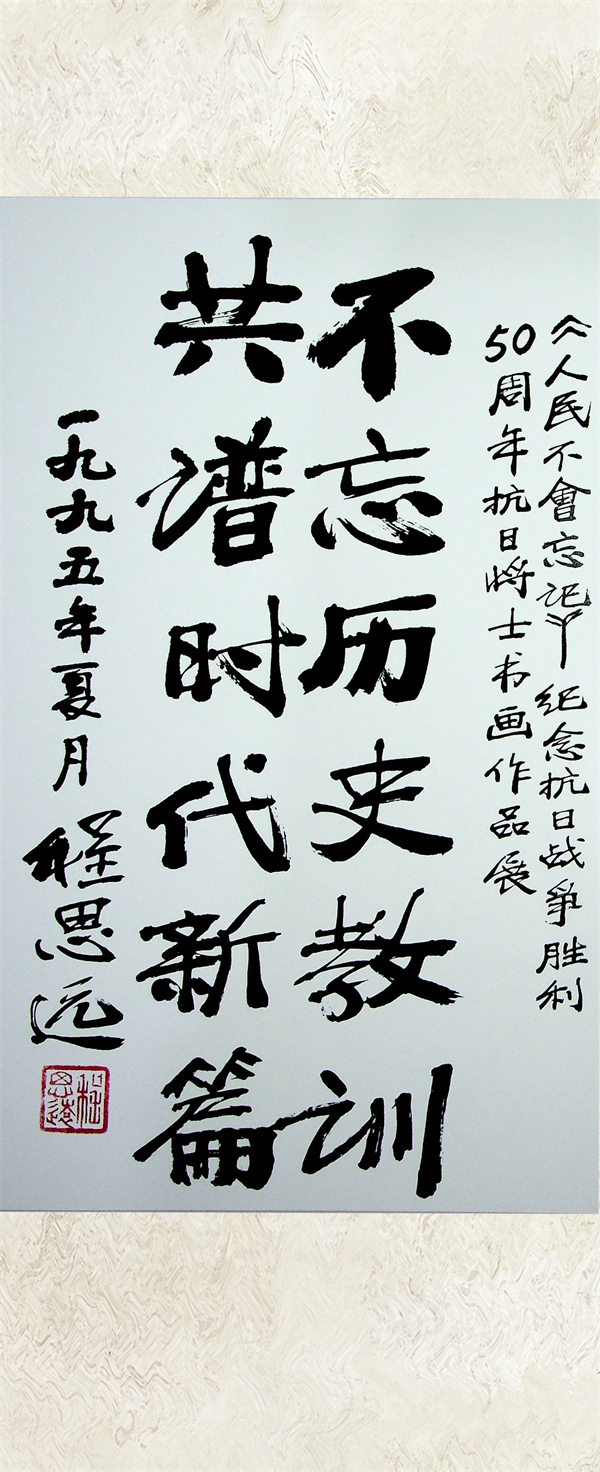 《人民不會忘记》纪念抗日战爭胜利
50周年抗日将士书画作品展
不忘历史教训
共谱时代新篇
一九九五年夏月
程思远
程思远